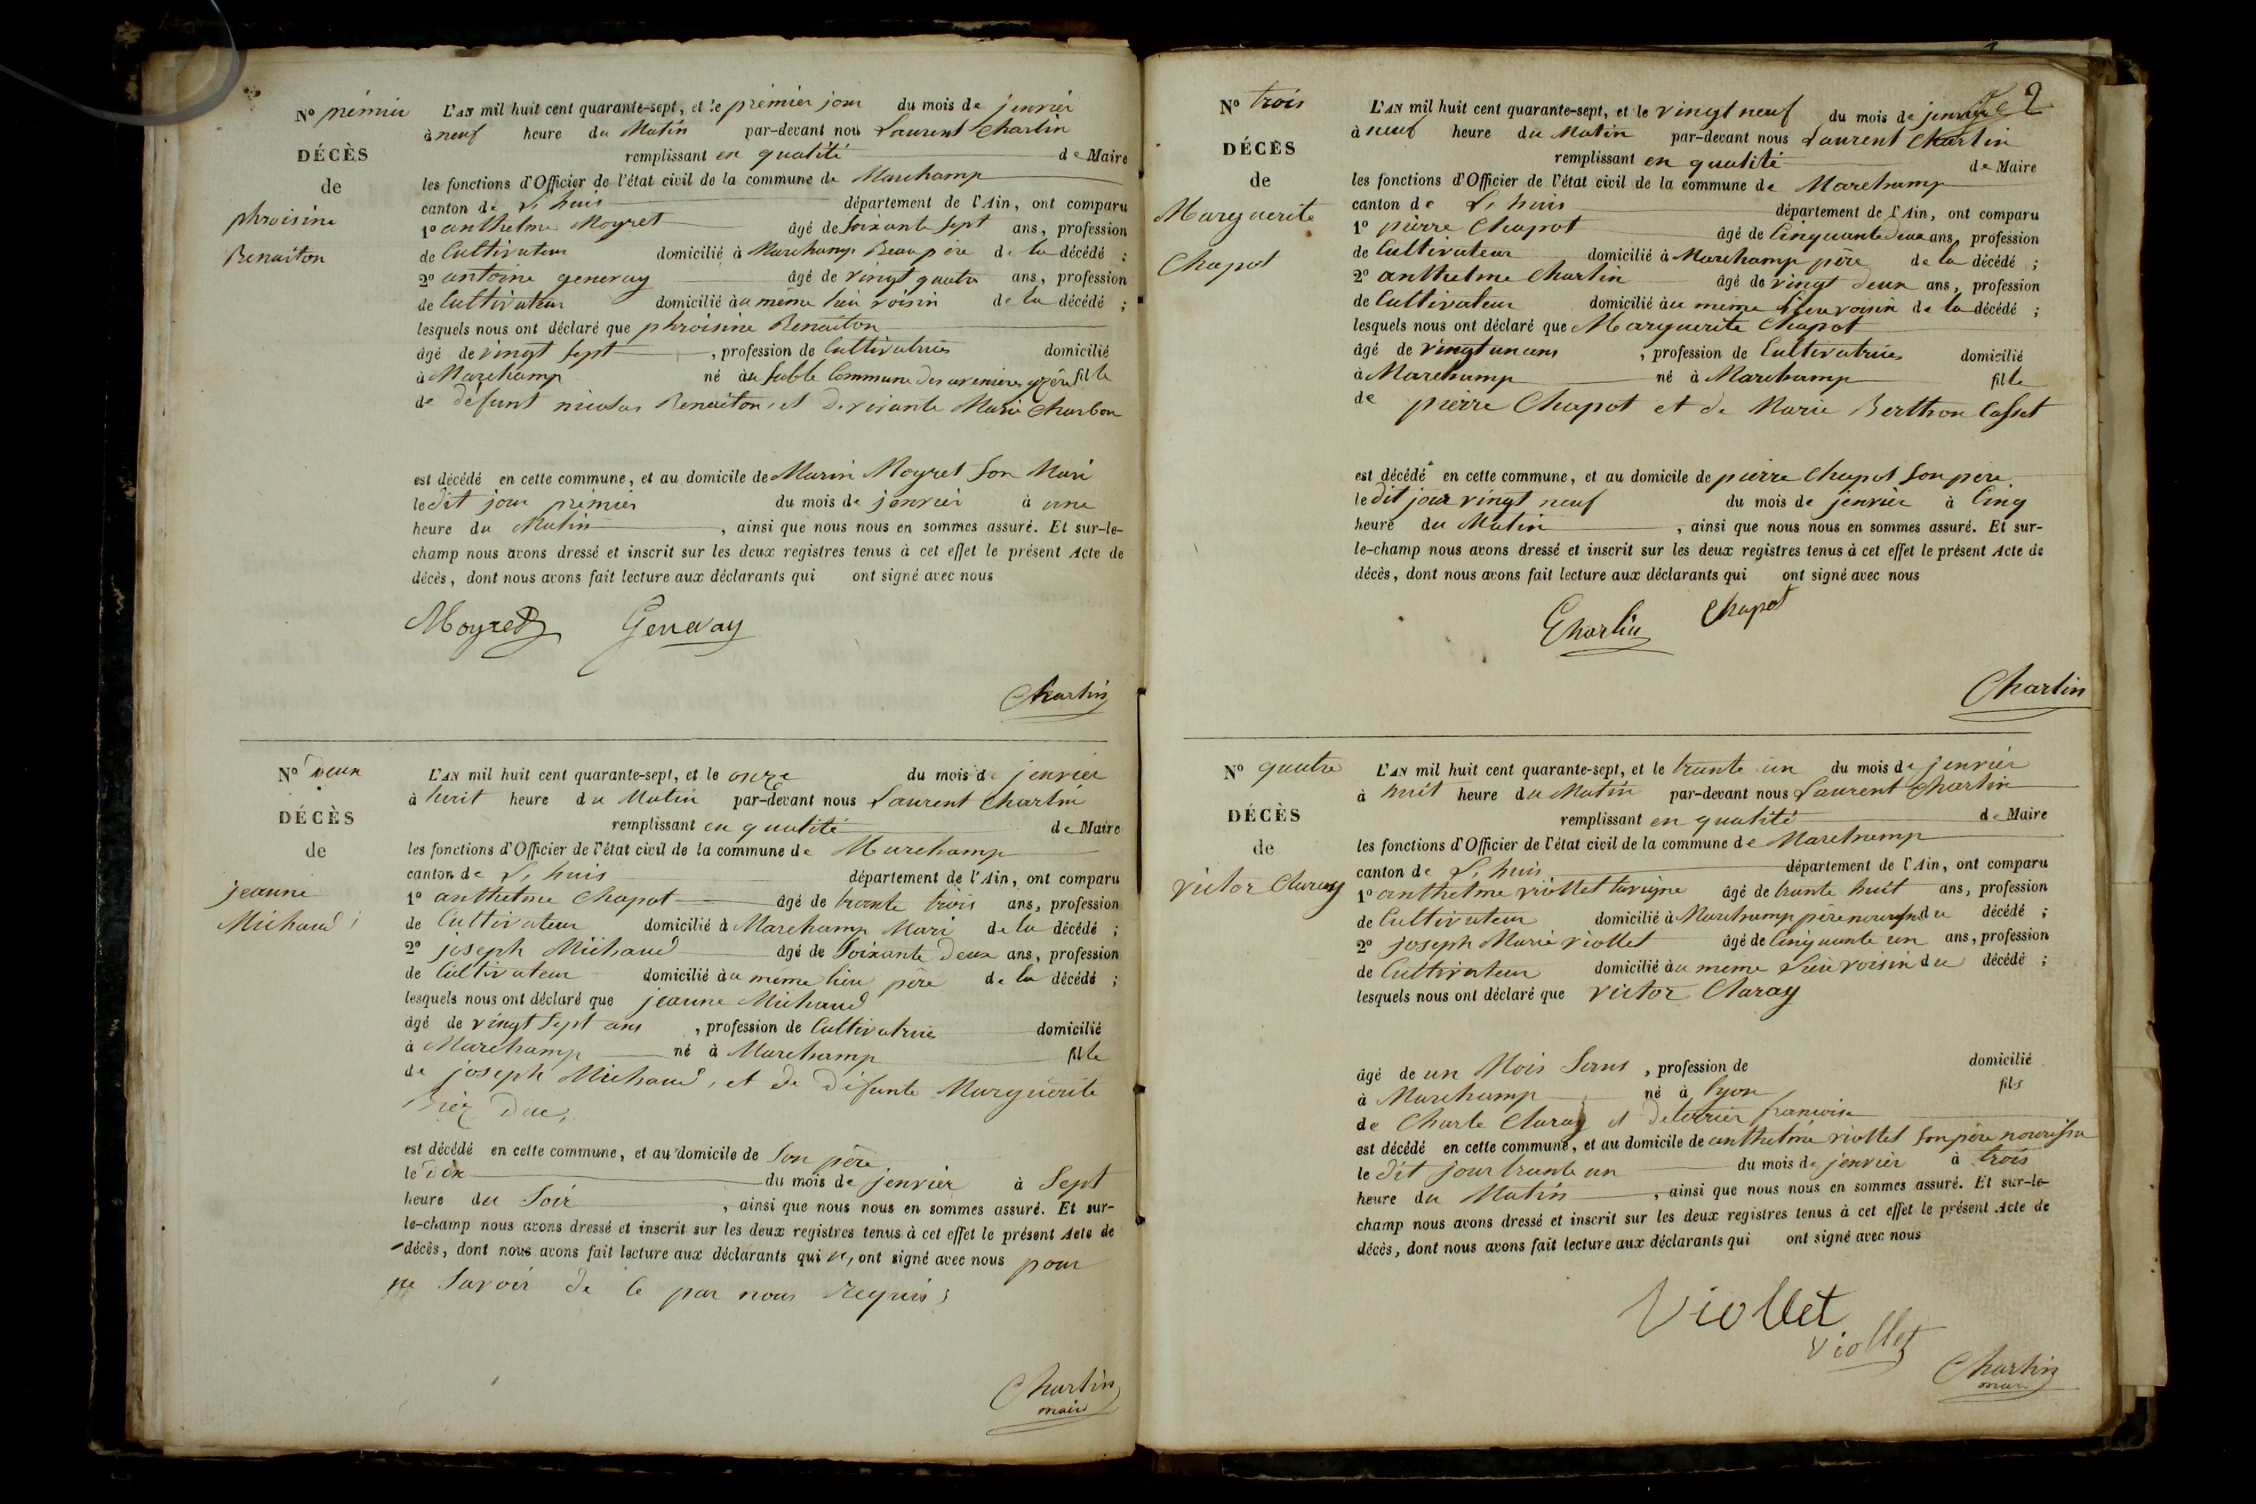 N° prémier
DÉCÈS
de
phroisine
Benaiton
L'AN mil huit cent quarante-sept, et le prémier jour du mois de jenvier
à neuf heure du Matin par-devant nous Laurent Charlin
remplissant en qualité de Maire
les fonctions d'Officier de l'état civil de la commune de Marchamp
canton de L'huis département de l'Ain, ont comparu
1° anthelme Moyret âgé de soixante sept ans, profession
de Cultivateur domicilié à Marchamp Beaupère de la décédé ;
2° antoine genevay âgé de vingt quatre ans, profession
de Cultivateur domicilié au même lieu voisin de la décédé ;
lesquels nous ont déclaré que phroisine Benaiton
âgé de vingt sept , profession de Cultivatrice domicilié
à Marchamp né au sable Commune des avenieres fille
de défunt nicolas Benaiton, et de vivante Marie Charbon
est décédé en cette commune, et au domicile de Marin Moyret son Mari
le dit jour prémier du mois de jenvier à une
heure du Matin , ainsi que nous nous en sommes assuré. Et sur-le-
champ nous avons dressé et inscrit sur les deux registres tenus à cet effet le présent Acte de
décès, dont nous avons fait lecture aux déclarants qui ont signé avec nous
Moyret Genevay
Charlin
N° deux
DÉCÈS
de
jeanne
Michaud
L'AN mil huit cent quarante-sept, et le onze du mois de jenvier
à huit heure du Matin par-devant nous Laurent Charlin
remplissant en qualité de Maire
les fonctions d'Officier de l'état civil de la commune de Marchamp
canton de L'huis département de l'Ain, ont comparu
1° anthelme Chapot âgé de trante trois ans, profession
de Cultivateur domicilié à Marchamp Mari de la décédé ;
2° joseph Michaud âgé de soixante deux ans, profession
de Cultivateur domicilié au meme lieu père de la décédé ;
lesquels nous ont déclaré que jeanne Michaud
âgé de vingt sept ans , profession de Cultivatrice domicilié
à Marchamp né à Marchamp fille
de joseph Michaud, et de défunte Marguerite
duc,
est décédé en cette commune, et au domicile de son père
le dix du mois de jenvier à sept
heure du soir , ainsi que nous nous en sommes assuré. Et sur-
le-champ nous avons dressé et inscrit sur les deux registres tenus à cet effet le présent Acte de
décès, dont nous avons fait lecture aux déclarants qui n'ont signé avec nous pour
ne savoir de ce par nous requis ;
Charlin
maire
2
N° trois
DÉCÈS
de
Marguerite
Chapot
L'AN mil huit cent quarante-sept, et le vingt neuf du mois de jenvier
à neuf heure du Matin par-devant nous Laurent Charlin
remplissant en qualité de Maire
les fonctions d'Officier de l'état civil de la commune de Marchamp
canton de L'huis département de l'Ain, ont comparu
1° pierre Chapot âgé de Cinquante deux ans, profession
de Cultivateur domicilié à Marchamp père de la décédé ;
2° anthelme Charlin âgé de vingt deux ans, profession
de Cultivateur domicilié au meme lieu voisin de la décédé ;
lesquels nous ont déclaré que Marguerite Chapot
âgé de vingt un ans , profession de Cultivatrice domicilié
à Marchamp né à Marchamp fille
de pierre Chapot et de Marie Berthon Casset
est décédé en cette commune, et au domicile de pierre Chapot son père
le dit jour vingt neuf du mois de jenvier à Cinq
heure du Matin , ainsi que nous nous en sommes assuré. Et sur-
le-champ nous avons dressé et inscrit sur les deux registres tenus à cet effet le présent Acte de
décès, dont nous avons fait lecture aux déclarants qui ont signé avec nous
Charlin Chapot
Charlin
N° quatre
DÉCÈS
de
victor Claray
L'AN mil huit cent quarante-sept, et le trante un du mois de jenvier
à huit heure du Matin par-devant nous Laurent Charlin
remplissant en qualité de Maire
les fonctions d'Officier de l'état civil de la commune de Marchamp
canton de L'huis département de l'Ain, ont comparu
1° anthelme viollet tavigne âgé de trante huit ans, profession
de Cultivateur domicilié à Marchamp père du décédé ;
2° joseph Marie viollet âgé de Cinquante un ans, profession
de Cultivateur domicilié au meme lieu voisin du décédé ;
lesquels nous ont déclaré que victor Claray
âgé de un Mois , profession de domicilié
à Marchamp né à lyon fils
de Charle Claray et de terrier francoise
est décédé en cette commune, et au domicile de anthelme viollet son père
le dit jour trante un du mois de jenvier à trois
heure du Matin , ainsi que nous nous en sommes assuré. Et sur-le-
champ nous avons dressé et inscrit sur les deux registres tenus à cet effet le présent Acte de
décès, dont nous avons fait lecture aux déclarants qui ont signé avec nous
Viollet
viollet
Charlin
maire